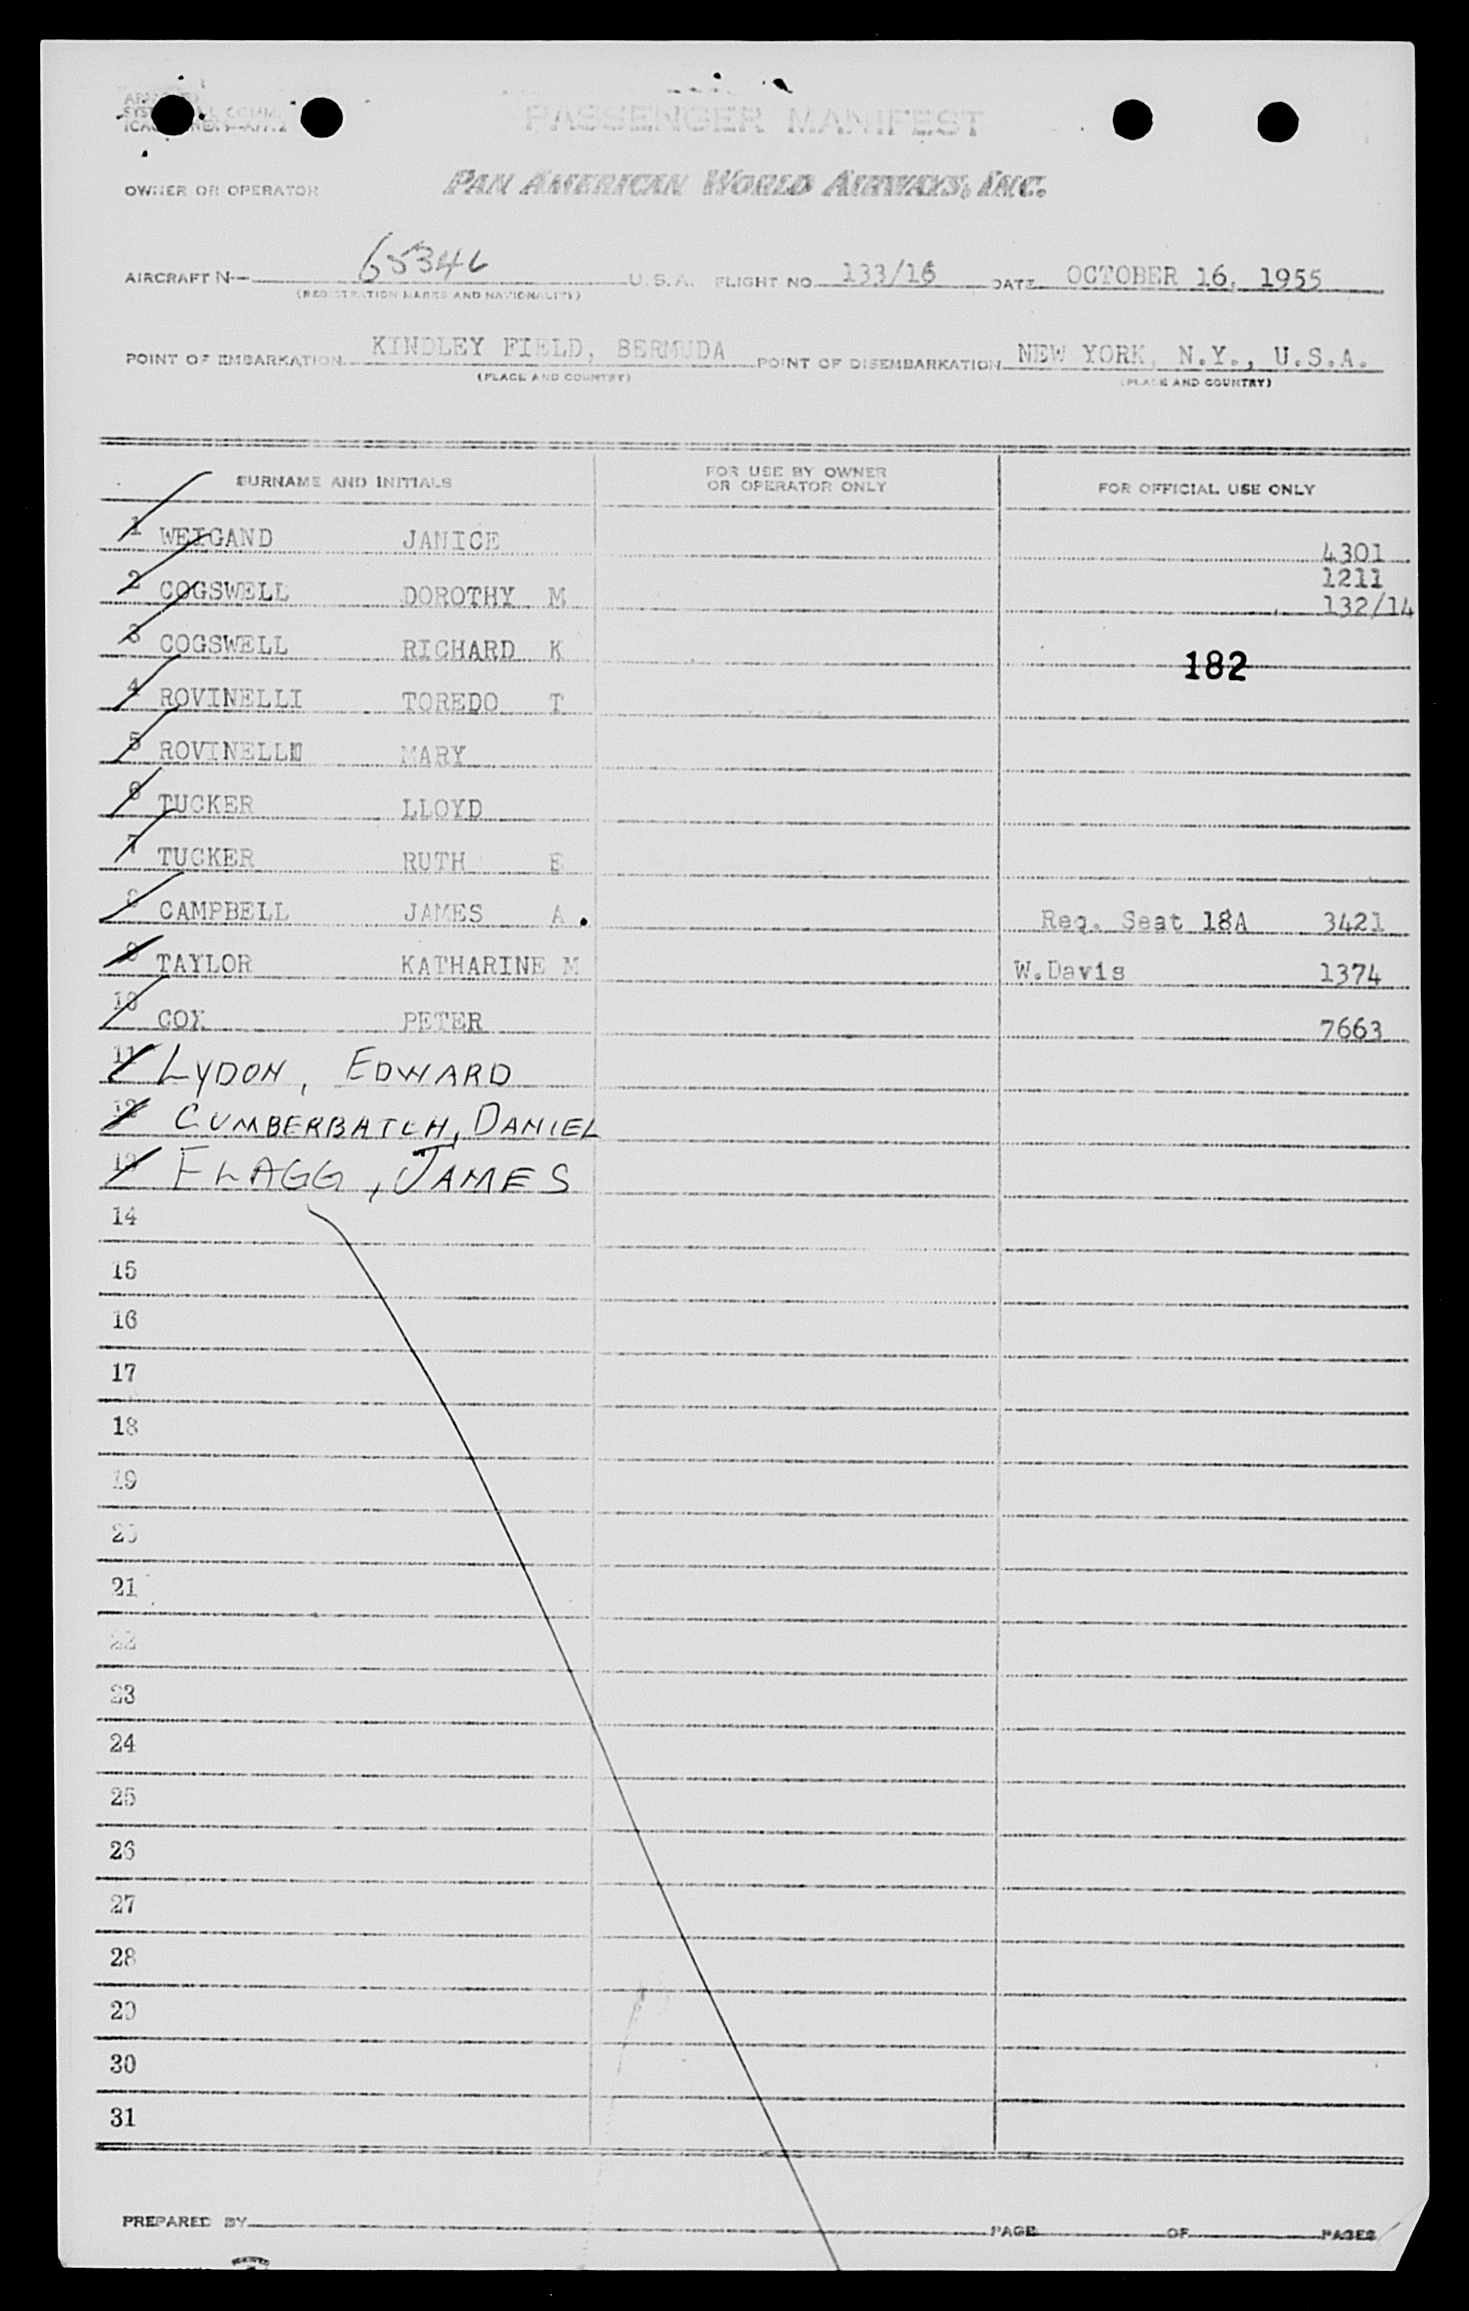 PASSENGER MANIFEST
OWNER OR OPERATOR PAN AMERICAN WORLD AIRWAYS, INC.
AIRCRAFT N— 65346 U.S.A. FLIGHT NO 133/16 DATE OCTOBER 16, 1955
(REGISTRATION MARKS AND NATIONALITY)
POINT OF EMBARKATION KINDLEY FIELD, BERMUDA POINT OF DISEMBARKATION NEW YORK, N.Y., U.S.A.
(PLACE AND COUNTRY) (PLACE AND COUNTRY)
SURNAME AND INITIALS FOR USE BY OWNER OR OPERATOR ONLY FOR OFFICIAL USE ONLY
1 WEIGAND JANICE 4301
1211
2 COGSWELL DOROTHY M 132/14
3 COGSWELL RICHARD K 182
4 ROVINELLI TOREDO T
5 ROVINELLI MARY
6 TUCKER LLOYD
7 TUCKER RUTH E
8 CAMPBELL JAMES A. Req. Seat 18A 3421
9 TAYLOR KATHARINE M W.Davis 1374
10 COX PETER 7663
11 LYDON, EDWARD
12 CUMBERBATCH, DANIEL
13 FLAGG, JAMES
14
15
16
17
18
19
20
21
22
23
24
25
26
27
28
29
30
31
PREPARED BY PAGE OF PAGES